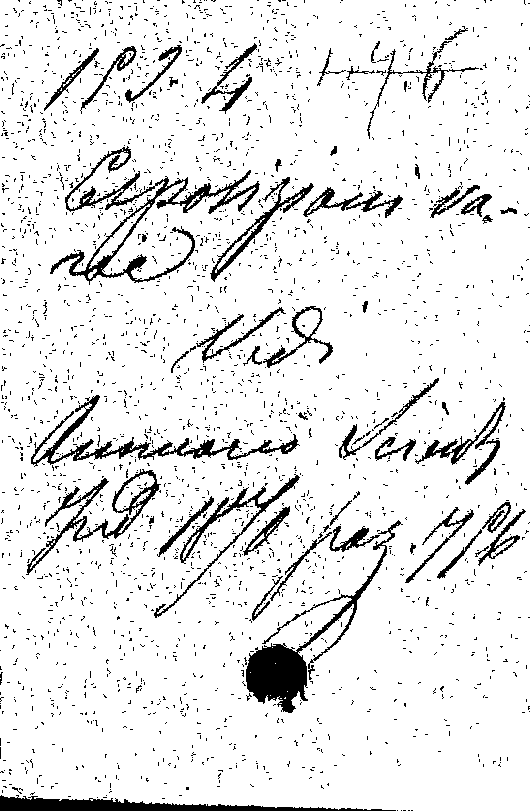 183.4 146
Esposizioni va-
rie
Vedi
Annuario Scient.
Ind. 1870 pag.